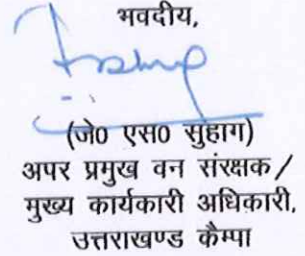 भवदीय,
(जे० एस० सुहाग)
अपर प्रमुख वन संरक्षक /
मुख्य कार्यकारी अधिकारी,
उत्तराखण्ड कैम्पा